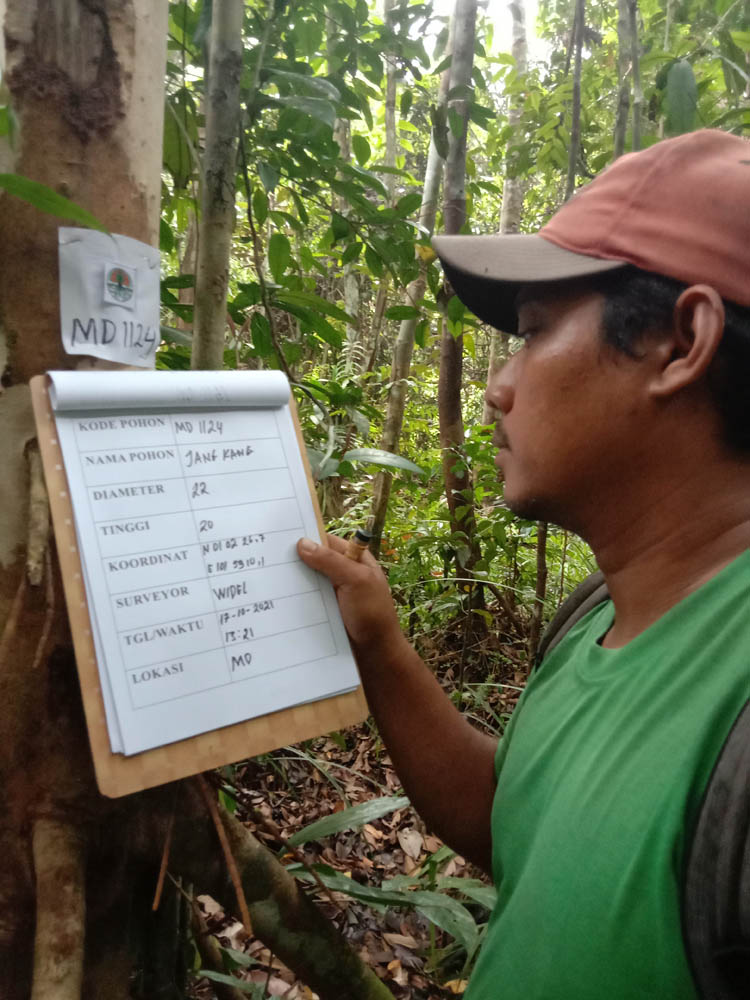 MD 1124
KODE POHON MD 1124
NAMA POHON JANG KANG
DIAMETER 22
TINGGI 20
KOORDINAT N 01 02 26.7
E 101 59 10.1
SURVEYOR WIDEL
TGL/WAKTU 17-10-2021
13:21
LOKASI MD